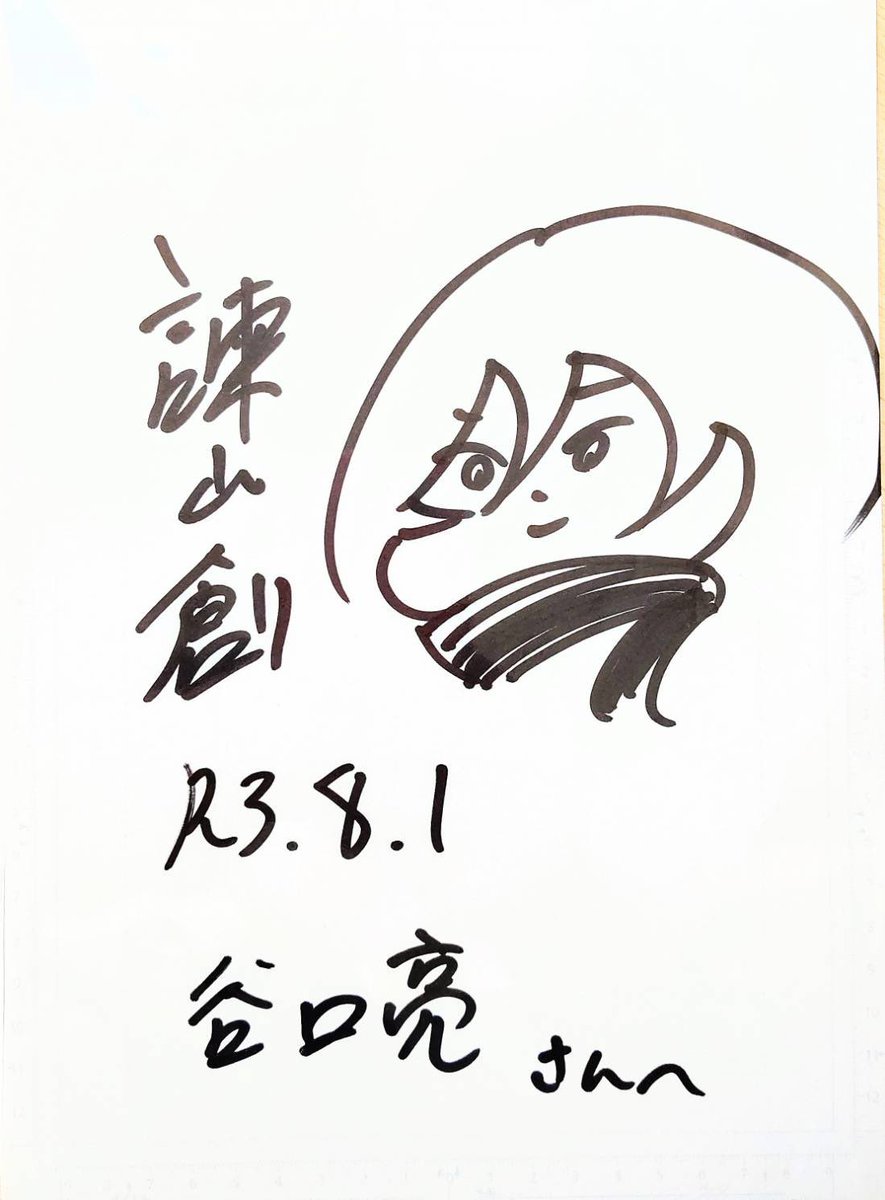 諫山創
R3.8.1
谷口亮 さんへ